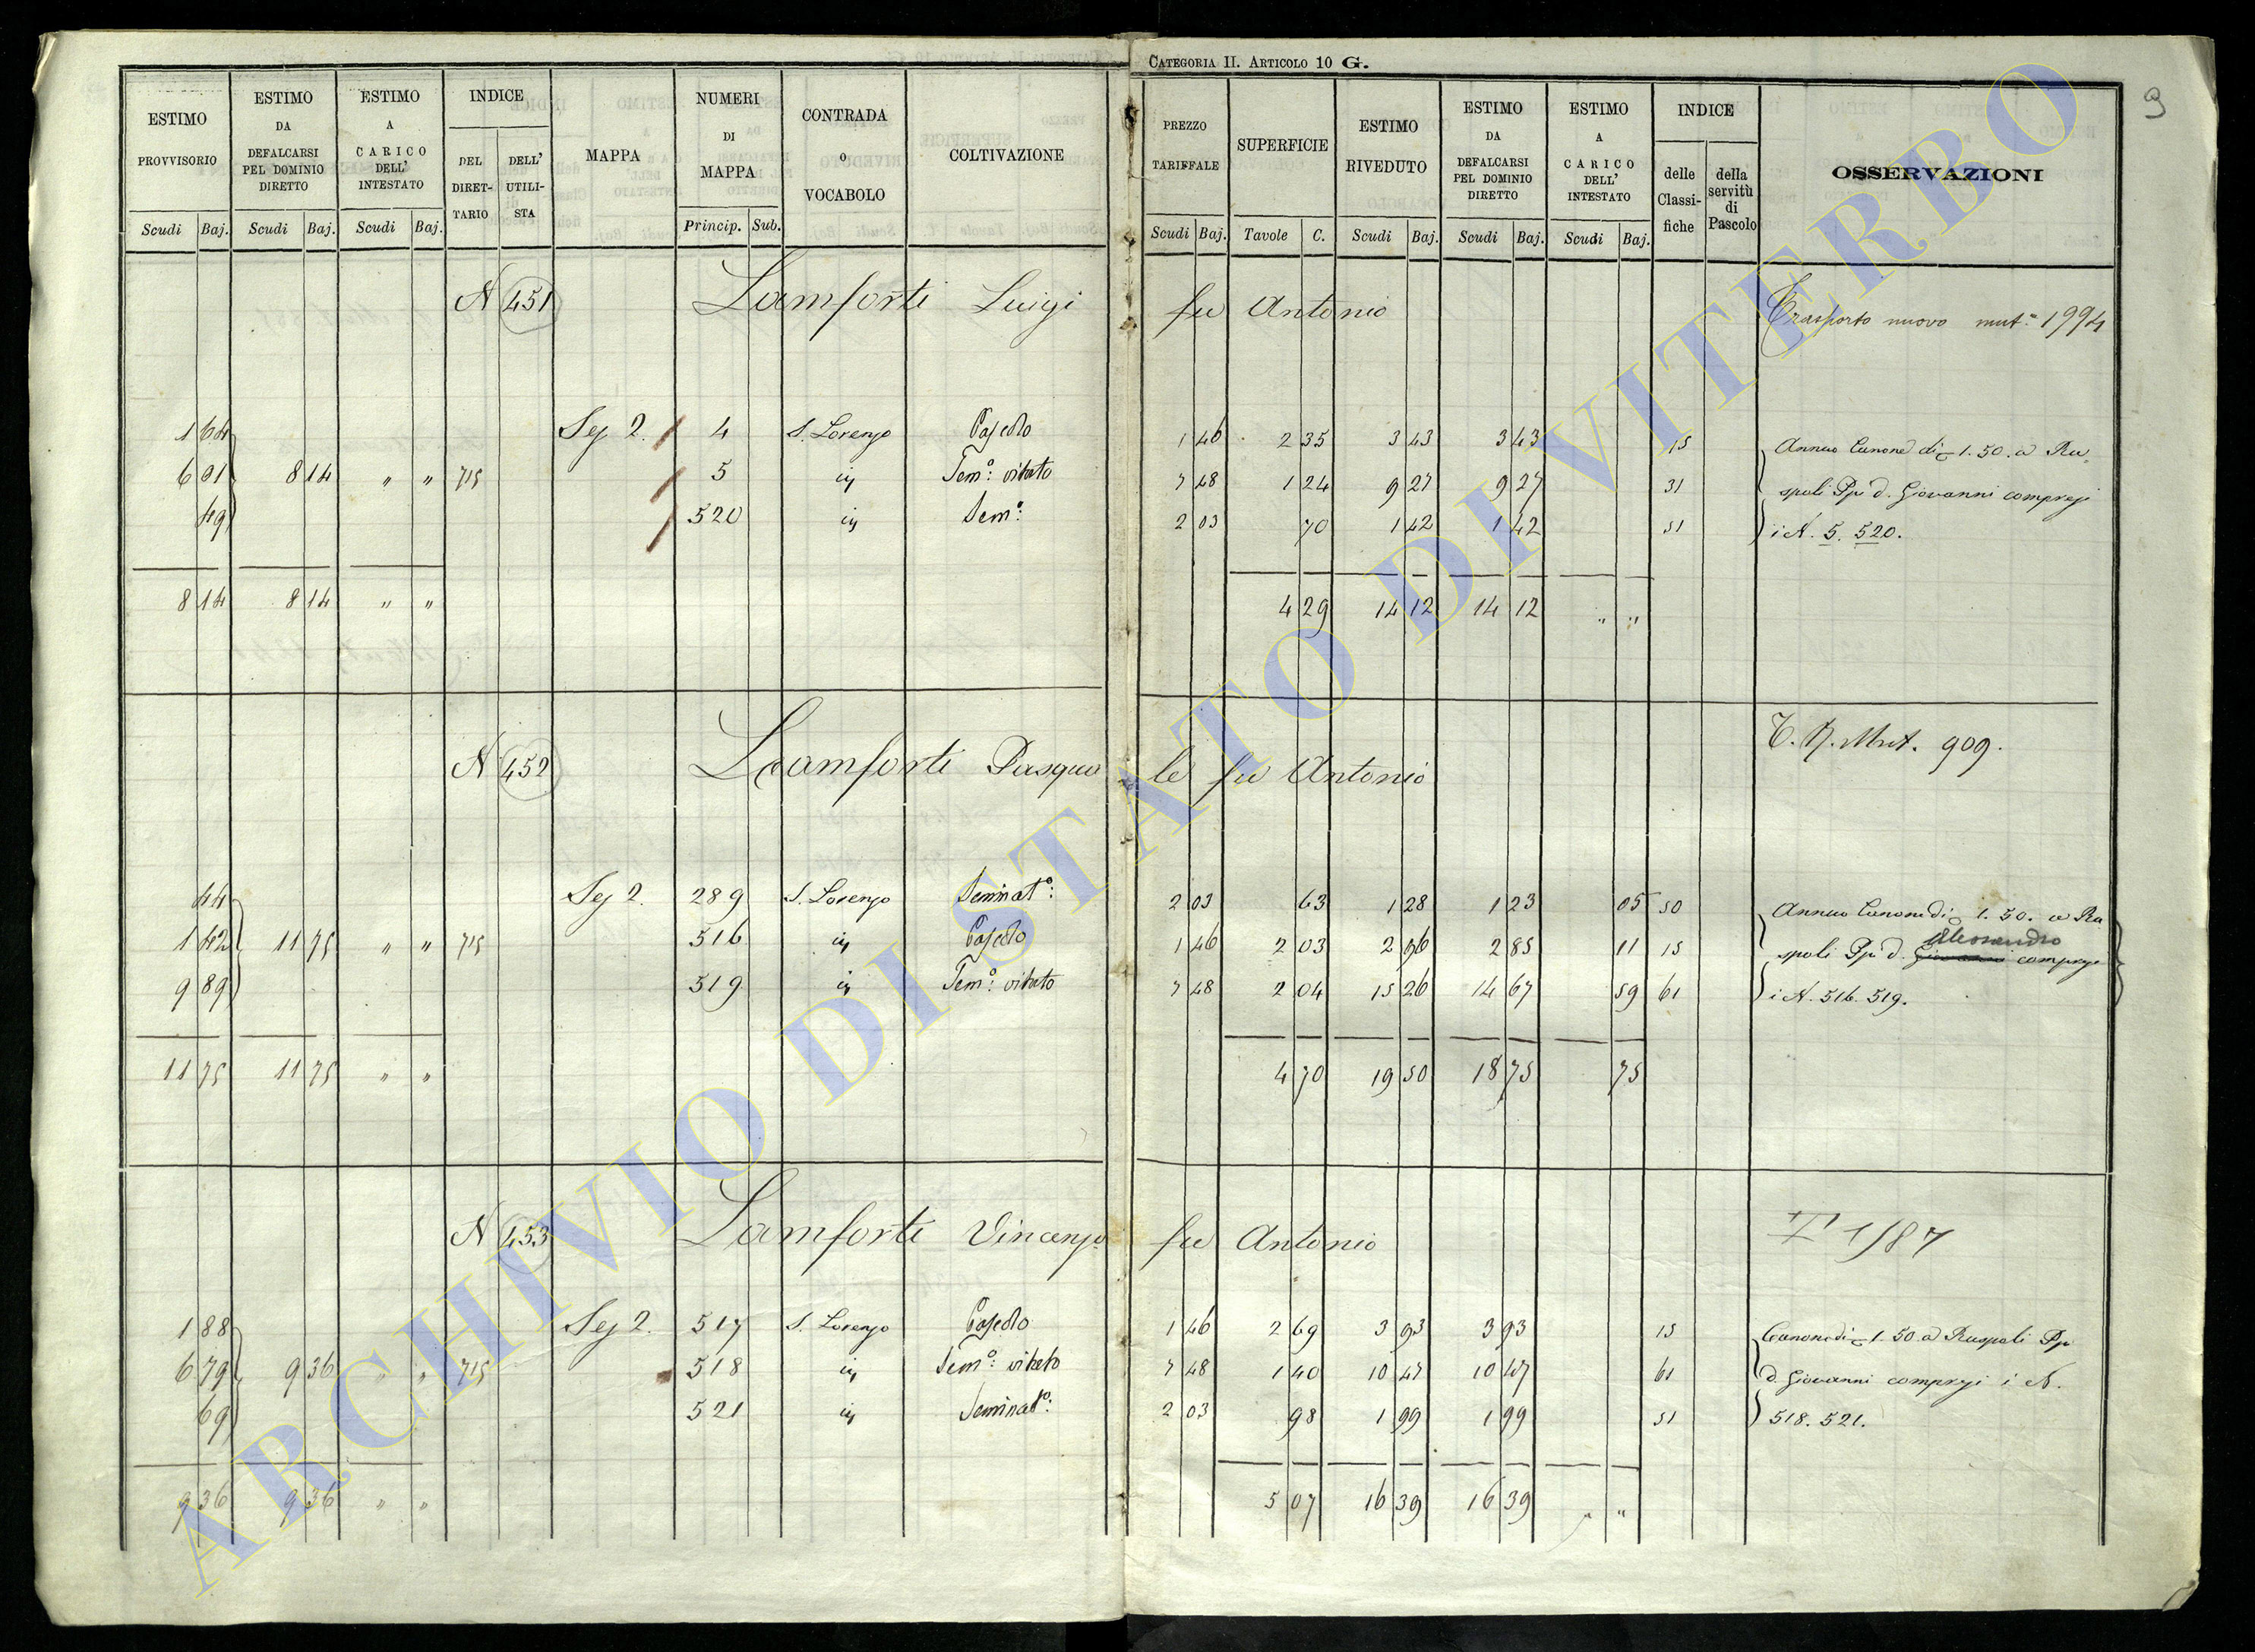 CATEGORIA II. ARTICOLO 10 G.
9
ESTIMO PROVVISORIO
ESTIMO DA DEFALCARSI PEL DOMINIO DIRETTO
ESTIMO A CARICO DELL' INTESTATO
INDICE
DEL DIRET-TARIO
DELL' UTILI-STA
MAPPA
NUMERI DI MAPPA
CONTRADA O VOCABOLO
COLTIVAZIONE
PREZZO TARIFFALE
SUPERFICIE
ESTIMO RIVEDUTO
ESTIMO DA DEFALCARSI PEL DOMINIO DIRETTO
ESTIMO A CARICO DELL' INTESTATO
INDICE
delle Classi-fiche
della servitù di Pascolo
OSSERVAZIONI
Scudi Baj. Scudi Baj. Scudi Baj. Princip. Sub. Scudi Baj. Tavole C. Scudi Baj. Scudi Baj. Scudi Baj.
N 451 Lamforti Luigi fu Antonio Trasporto nuovo mut.e 1994
1 64 Sez 2. 4 S. Lorenzo 1 46 2 35 3 43 3 43 15 Annuo Canone di 1.50. a Ru
6 01 8 14 " " 715 5 iq Sem.o: vitato 7 48 1 24 9 27 9 27 31 spoli Ppe d. Giovanni compresi
49 520 iq Sem.o: 2 03 70 1 42 1 42 51 i N. 5. 520.
8 14 8 14 " " 4 29 14 12 14 12 " "
N 452 Lamforti Pasqua le fu Antonio T. N. Mut. 909.
44 Sez 2. 289 S. Lorenzo Seminat.o: 2 03 63 1 28 1 23 05 50 Annuo Canone di 1.50. a Ru
1 42 11 75 " " 715 516 iq 1 46 2 03 2 96 2 85 11 15 spoli Ppe d. Giovanni Alessandro compresi
9 89 519 iq Sem.o: vitato 7 48 2 04 15 26 14 67 59 61 i N. 516. 519.
11 75 11 75 " " 4 70 19 50 18 75 75
N 453 Lamforti Vincenzo fu Antonio 1/87
1 88 Sez 2. 517 S. Lorenzo 1 46 2 69 3 93 3 93 15 Canone di 1.50 a Ruspoli Ppe
6 79 9 36 " " 715 518 iq Sem.o: vitato 7 48 1 40 10 47 10 47 61 d. Giovanni compresi i N.
69 521 iq Seminat.o: 2 03 98 1 99 1 99 51 518. 521.
9 36 9 36 " " 5 07 16 39 16 39 " "
ARCHIVIO DI STATO DI VITERBO